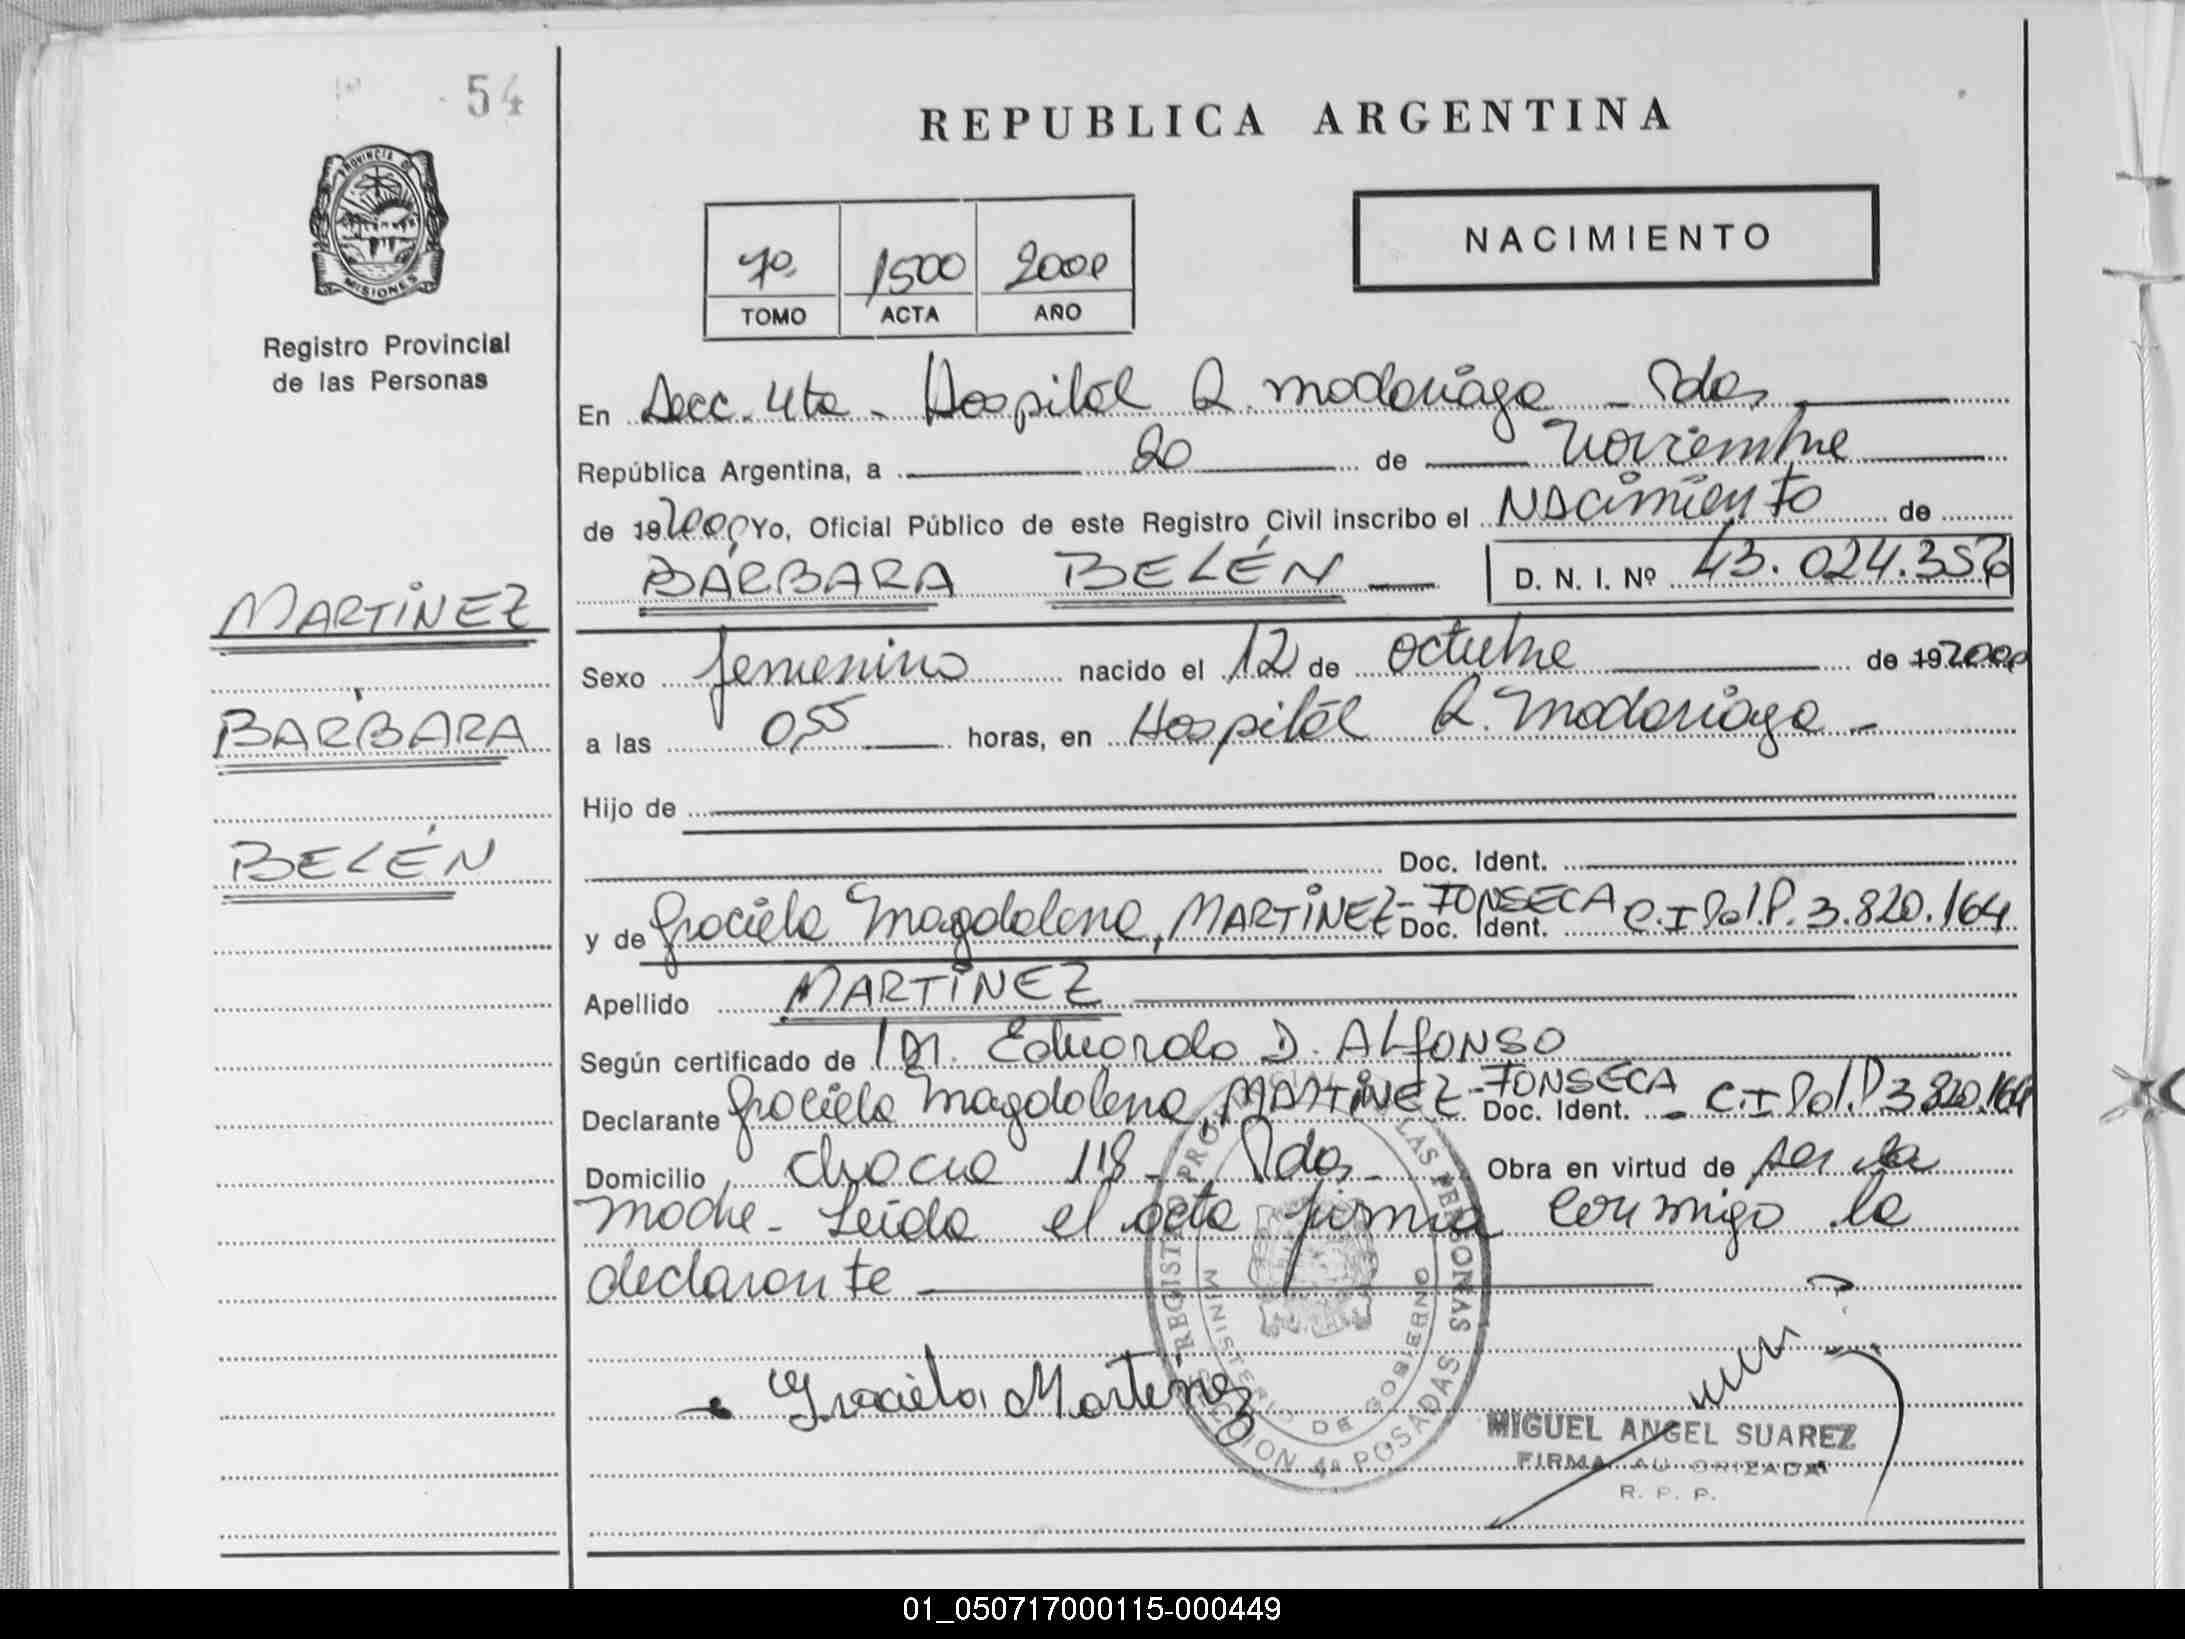 54
PROVINCIA DE
MISIONES
Registro Provincial
de las Personas
MARTÍNEZ
BÁRBARA
BELÉN
REPUBLICA ARGENTINA
NACIMIENTO
7º 1500 2000
TOMO ACTA AÑO
En Secc. 4ta - Hospital R. Madariaga - Pdas
República Argentina, a 20 de Noviembre
de 19 2000 Yo, Oficial Público de este Registro Civil inscribo el NACIMIENTO de
BÁRBARA BELÉN D. N. I. Nº 43.024.356
Sexo femenino nacido el 12 de octubre de 19 2000
a las 0,55 horas, en Hospital R. Madariaga -
Hijo de
Doc. Ident.
y de Graciela Magdalena, MARTÍNEZ - FONSECA Doc. Ident. C.I Pol.P. 3.820.164
Apellido MARTÍNEZ
Según certificado de Dr. Eduardo D. ALFONSO
Declarante Graciela Magdalena, MARTÍNEZ - FONSECA Doc. Ident. - C.I Pol.P 3.820.164
Domicilio Chaco 118 - Pdas - Obra en virtud de ser la
madre - Leída el acta firma conmigo la
declarante
Graciela Martinez
REGISTRO PROV LAS PERSONAS
MINISTERIO DE GOBIERNO
4ª POSADAS
MIGUEL ANGEL SUAREZ
FIRMA AUTORIZADA
R. P. P.
01_050717000115-000449